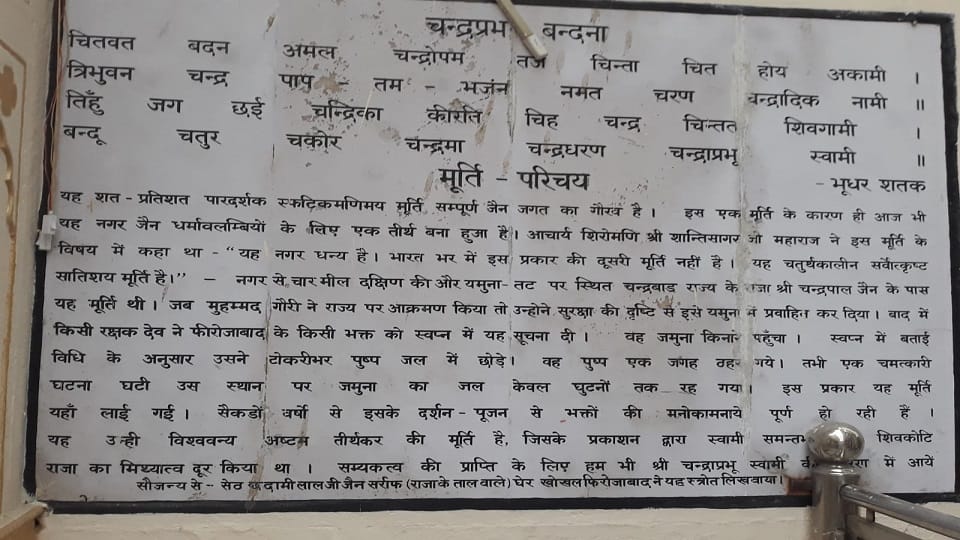 चन्द्रप्रभ बन्दना
चितवत बदन अमल चन्द्रोपम तज चिन्ता चित होय अकामी ।
त्रिभुवन चन्द्र पाप - तम - भजंन नमत चरण चन्द्रादिक नामी ॥
तिहुँ जग छई चन्द्रिका कीरति चिह चन्द्र चिन्तत शिवगामी ।
बन्दू चतुर चकोर चन्द्रमा चन्द्रधरण चन्द्राप्रभू स्वामी ॥
मूर्ति - परिचय
- भूधर शतक
यह शत - प्रतिशत पारदर्शक स्फटिक्रमणिमय मूर्ति सम्पूर्ण जैन जगत का गौरव है । इस एक मूर्ति के कारण ही आज भी
यह नगर जैन धर्मावलम्बियों के लिए एक तीर्थ बना हुआ है । आचार्य शिरोमणि श्री शान्तिसागर जी महाराज ने इस मूर्ति के
विषय में कहा था - “ यह नगर धन्य है । भारत भर में इस प्रकार की दूसरी मूर्ति नहीं है । यह चतुर्थकालीन सर्वोत्कृष्ट
सातिशय मूर्ति है ।” – नगर से चार मील दक्षिण की और यमुना - तट पर स्थित चन्द्रवाड़ राज्य के राजा श्री चन्द्रपाल जैन के पास
यह मूर्ति थी । जब मुहम्मद गौरी ने राज्य पर आक्रमण किया तो उन्होने सुरक्षा की दृष्टि से इसे यमुना में प्रवाहित कर दिया । बाद में
किसी रक्षक देव ने फीरोजाबाद के किसी भक्त को स्वप्न में यह सूचना दी । वह जमुना किनारे पहुँचा । स्वप्न में बताई
विधि के अनुसार उसने टोकरीभर पुष्प जल में छोड़े । वह पुष्प एक जगह ठहर गये । तभी एक चमत्कारी
घटना घटी उस स्थान पर जमुना का जल केवल घुटनों तक रह गया । इस प्रकार यह मूर्ति
यहाँ लाई गई । सैकडों वर्षो से इसके दर्शन - पूजन से भक्तों की मनोकामनाये पूर्ण हो रही हैं ।
यह उन्ही विश्ववन्य अष्टम तीर्थकर की मूर्ति है, जिसके प्रकाशन द्वारा स्वामी शिवकोटि
राजा का मिथ्यात्व दूर किया था । सम्यकत्व की प्राप्ति के लिए हम भी श्री चन्द्राप्रभू स्वामी में आयें
सौजन्य से - सेठ छदामी लाल जी जैन सर्राफ (राजा के ताल वाले) घेर खोखल फिरोजाबाद ने यह स्त्रोत लिखवाया ।